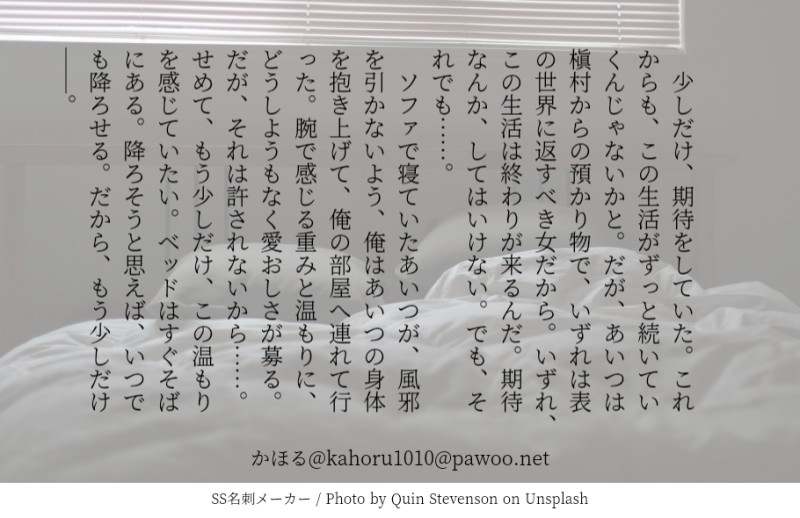 少しだけ、期待をしていた。これ
からも、この生活がずっと続いてい
くんじゃないかと。だが、あいつは
槇村からの預かり物で、いずれは表
の世界に返すべき女だから。いずれ、
この生活は終わりが来るんだ。期待
なんか、してはいけない。でも、そ
れでも……。
ソファで寝ていたあいつが、風邪
を引かないよう、俺はあいつの身体
を抱き上げて、俺の部屋へ連れて行
った。腕で感じる重みと温もりに、
どうしようもなく愛おしさが募る。
だが、それは許されないから……。
せめて、もう少しだけ、この温もり
を感じていたい。ベッドはすぐそば
にある。降ろそうと思えば、いつで
も降ろせる。だから、もう少しだけ
――。
かほる@kahoru1010@pawoo.net
SS名刺メーカー / Photo by Quin Stevenson on Unsplash